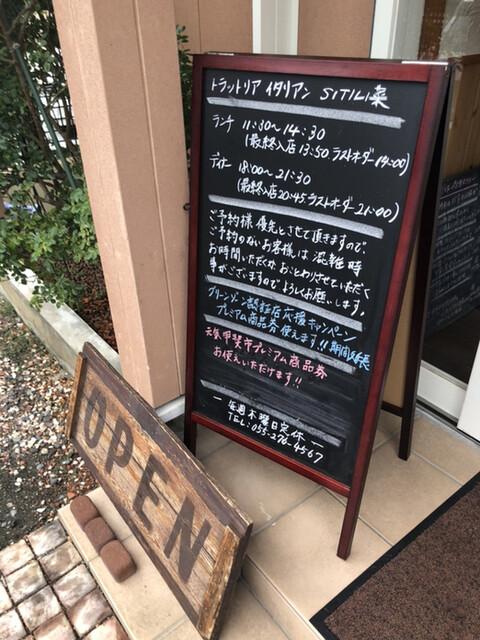 トラットリア イタリアン SITILI菜
ランチ 11:30～14:30
(最終入店 13:50 ラストオーダー14:00)
ディナー 18:00～21:30
(最終入店20:45 ラストオーダー21:00)
ご予約様 優先とさせて頂きますので
ご予約のないお客様は 混雑時
お時間いただくか、おことわりさせていただく
事がございますので よろしくお願いします。
グリーンゾーン認証店 応援キャンペーン
プレミアム商品券 使えます!! 期間延長
元気 甲斐市プレミアム商品券
お使いいただけます!!
ー 毎週 木曜日定休 ー
TEL:055-276-4567
OPEN